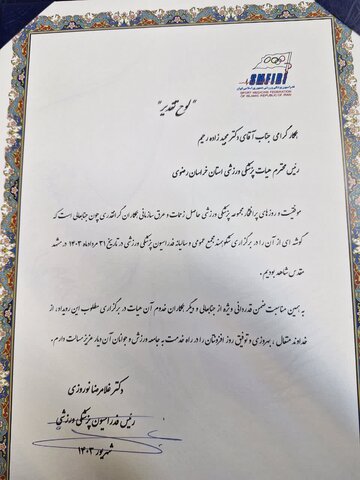 فدراسیون پزشکی ورزشی جمهوری اسلامی ایران
SPORT MEDICINE FEDERATION
OF ISLAMIC REPUBLIC OF IRAN
"لوح تقدیر"
همکار گرامی جناب آقای دکتر مجید زاده رحیم
رئیس محترم هیات پزشکی ورزشی استان خراسان رضوی
موفقیت و روزهای پرافتخار مجموعه پزشکی ورزشی حاصل زحمات و عرق سازمانی همکاران گرانقدری چون جنابعالی است که
گوشه ای از آن را در برگزاری شکوهمند مجمع عمومی و سالیانه فدراسیون پزشکی ورزشی در تاریخ ۳۱ مرداد ماه ۱۴۰۳ در مشهد
مقدس شاهد بودیم.
به همین مناسبت ضمن قدردانی ویژه از جنابعالی و دیگر همکاران خدوم آن هیات در برگزاری مطلوب این رویداد، از
خداوند متعال، بهروزی و توفیق روز افزونتان را در راه خدمت به جامعه ورزش و جوانان آن دیار عزیز مسالت دارم.
دکتر غلامرضا نوروزی
رئیس فدراسیون پزشکی ورزشی
شهریور ۱۴۰۳